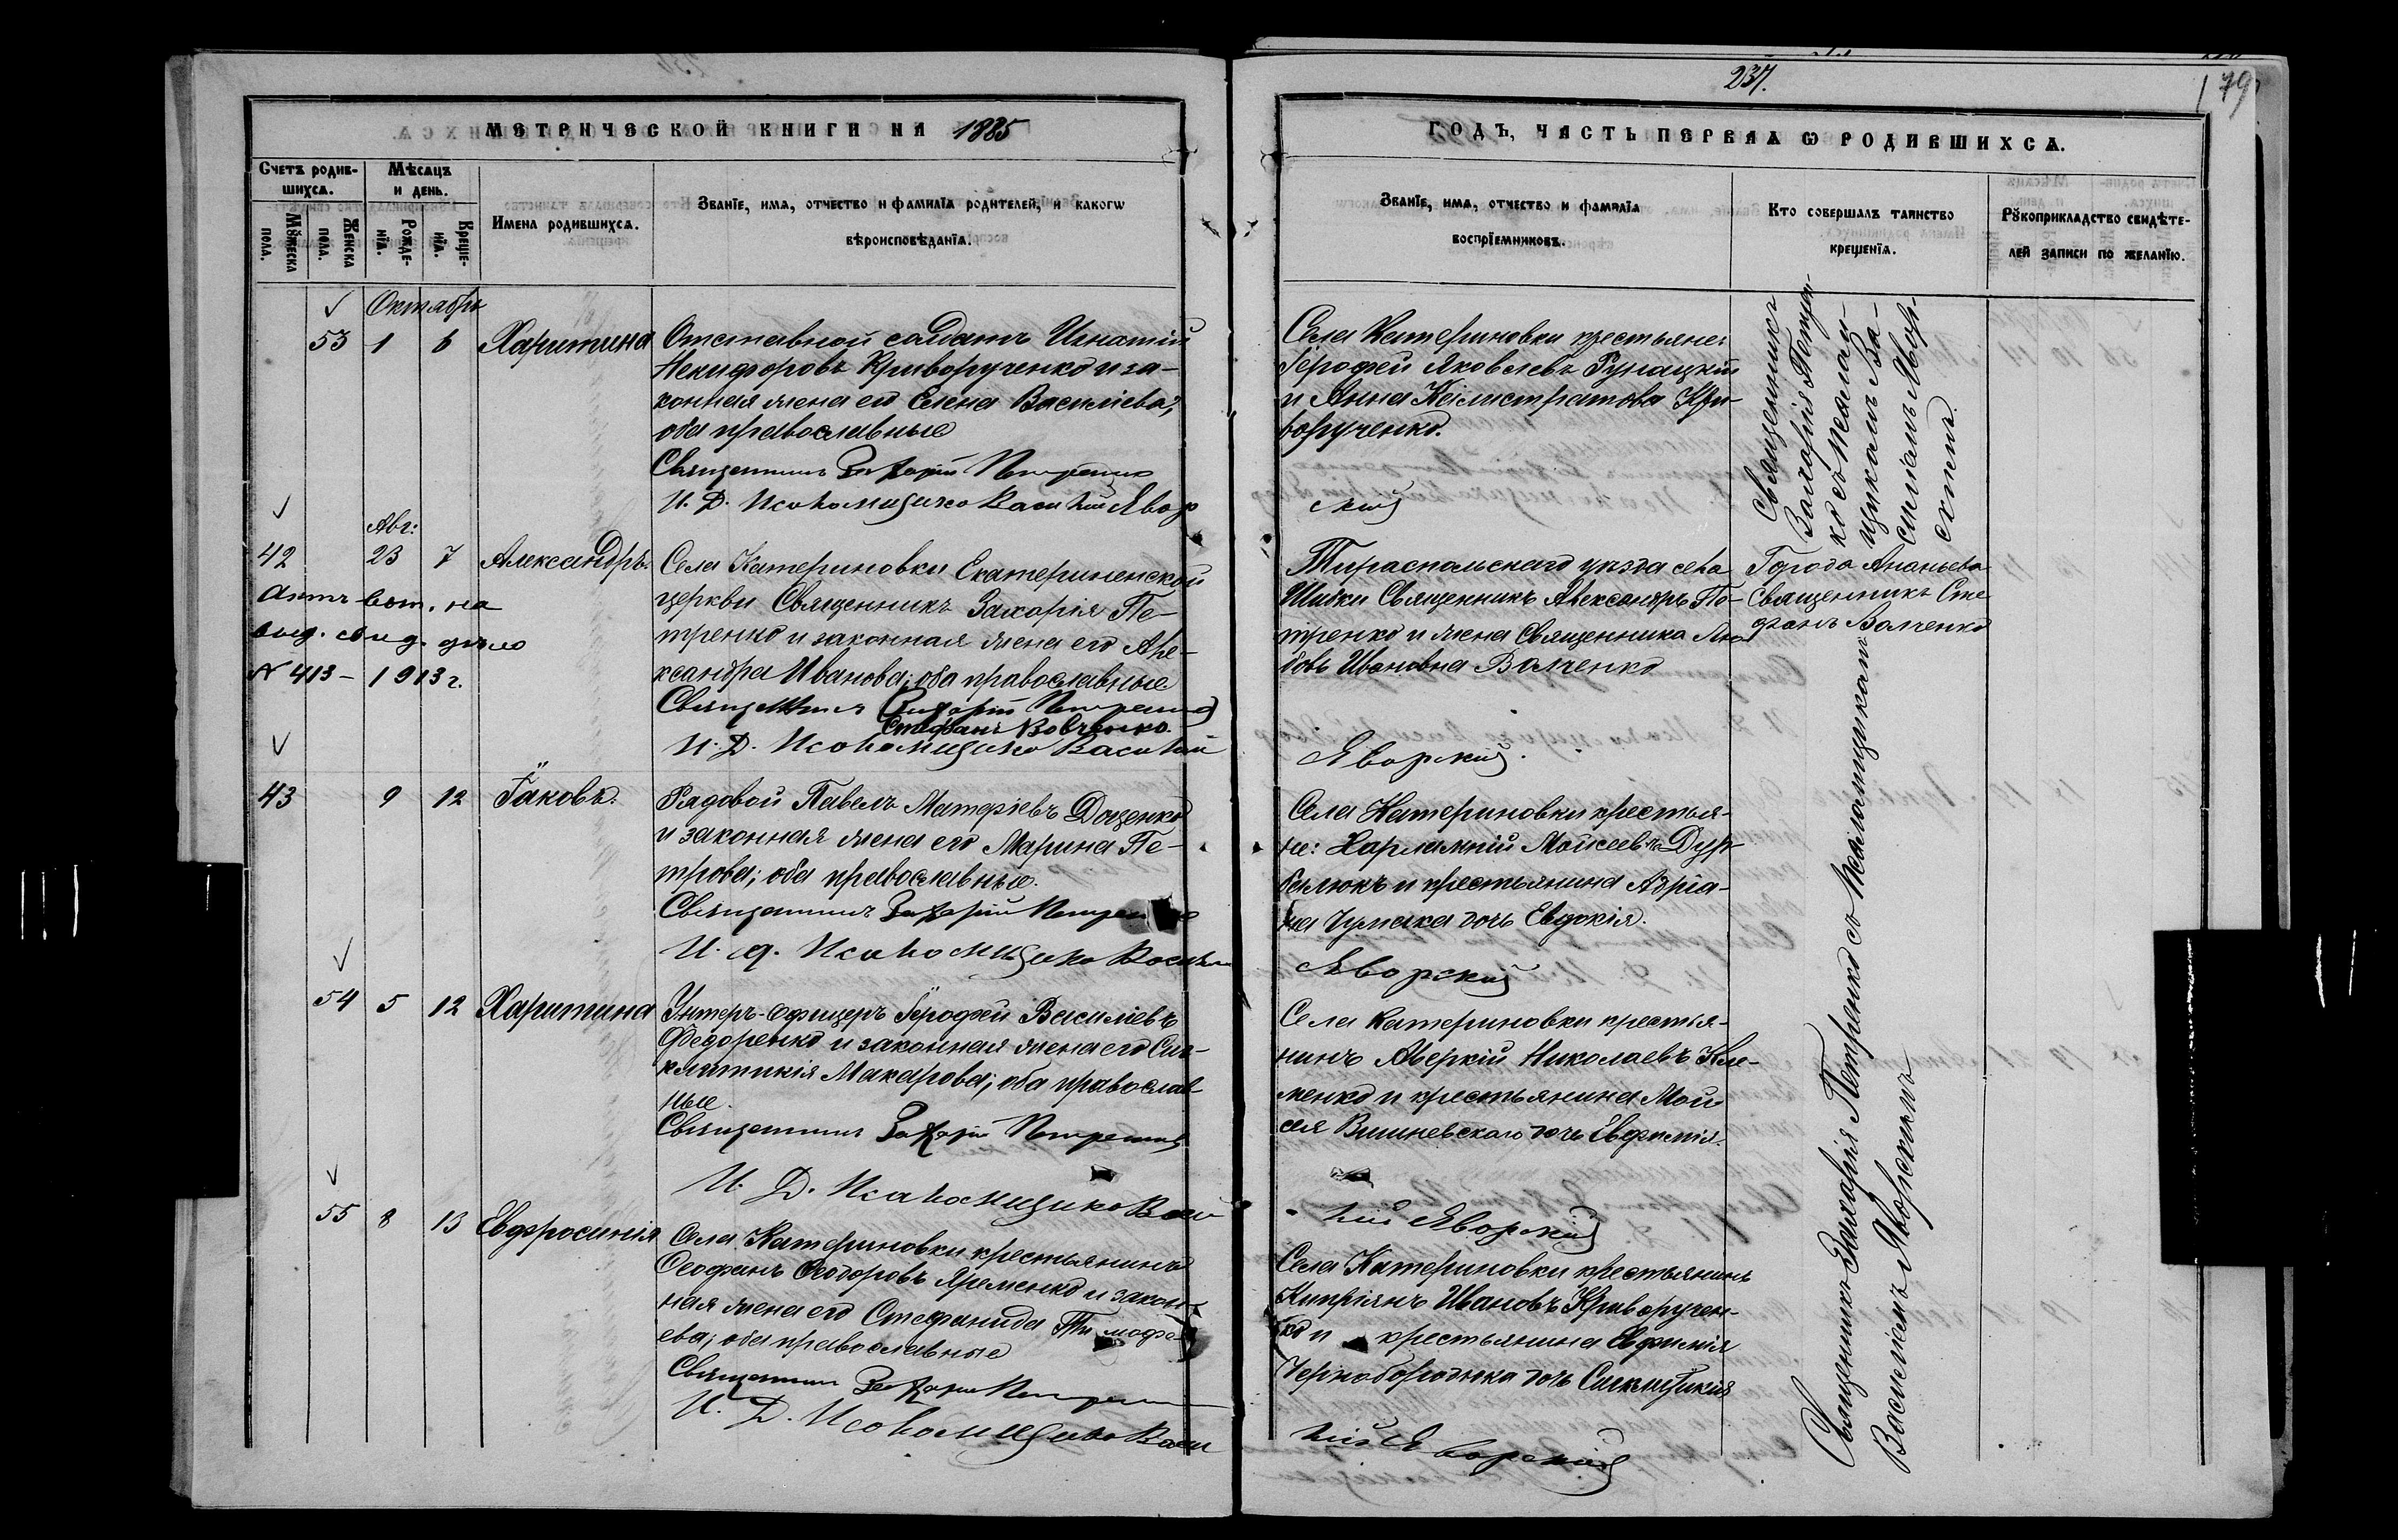 237.
179
МЕТРИЧЕСКОЙ КНИГИ НА 1885
ГОДЪ, ЧАСТЬ ПЕРВАѦ Ѡ РОДИВШИХСѦ.
Счетъ родив-
шихсѧ.
Мѣсѧцъ
и день.
Мꙋжеска
пола.
Женска
пола.
Рожде-
нїѧ.
Креще-
нїѧ.
Имена родившихсѧ.
Званїе, имѧ, отчество и фамилїѧ родителей, и какогѡ
вѣроисповѣданїѧ.
Званїе, имѧ, отчество и фамилїѧ
воспрїемниковъ.
Кто совершалъ таинство
крещенїѧ.
Рꙋкоприкладство свидѣте-
лей записи по желанїю.
Октябрь
53 1 6 Харитина
Отставной солдатъ Игнатій
Никифоровъ Криворученко и за-
конная жена его Елена Василіева;
оба православные
Священникъ Захарій Петренко
И. Д. Псаломщика Василий Явор
Села Катериновки крестьяне:
Іерофей Яковлевъ Рунацкій
и Анна Калистратова Кри-
ворученко.
ский
Священникъ
Захарія Петрен-
ко съ псалом-
щикомъ Ва-
силіемъ Явор-
скимъ.
Авг:
42 23 7 Александръ.
Актъ
вид. свид. дѣло
№ 413 - 1913 г.
Села Катериновки Екатерининской
церкви Священникъ Захарія Пе-
тренко и законная жена его Але-
ксандра Иванова; оба православные.
Священникъ Захарій Петренко
Стефанъ Волченко.
И. Д. Псаломщика Василий
Тираспольскаго уѣзда села
Шибки Священникъ Александръ Пе-
тренко и жена Священника Лю-
бовь Ивановна Волченко
Яворский.
Города Ананьева
Священникъ Сте
фанъ Волченко
43 9 12 Іаковъ.
Рядовой Павелъ Матѳіевъ Доценко
и законная жена его Марина Пе-
трова; оба православные.
Священникъ Захарій Петренко
И. д. Псаломщика Васил
Села Катериновки крестья-
не: Харлампій Мойсеевъ Дур-
балюкъ и крестьянина Адріа-
на Чумака дочь Евдокія.
Яворский
54 5 12 Харитина
Унтеръ-Офицеръ Іерофей Василіевъ
Федоренко и законная жена его Син-
клитикія Макарова; оба православ
ные.
Священникъ Захарій Петренко
И. Д. Псаломщика Васи
Села Катериновки крестья-
нинъ Аверкій Николаевъ Кли-
менко и крестьянина Мои
сея Вишневскаго дочь Евфимія.
лий Яворский
Священникъ Захарія Петренко съ псаломщикомъ
Василіемъ Яворскимъ
55 8 13 Евфросинія
Села Катериновки крестьянинъ
Ѳеофанъ Ѳеодоровъ Яременко и закон-
ная жена его Стефанида Тимофе
ева; оба православные
Священникъ Захарій Петренко
И. Д. Псаломщика Васи
Села Катериновки крестьянинъ
Кипріянъ Ивановъ Криворучен-
ко и крестьянина Евфимія
Чернобородюка дочь Синклитикія
лий Яворский